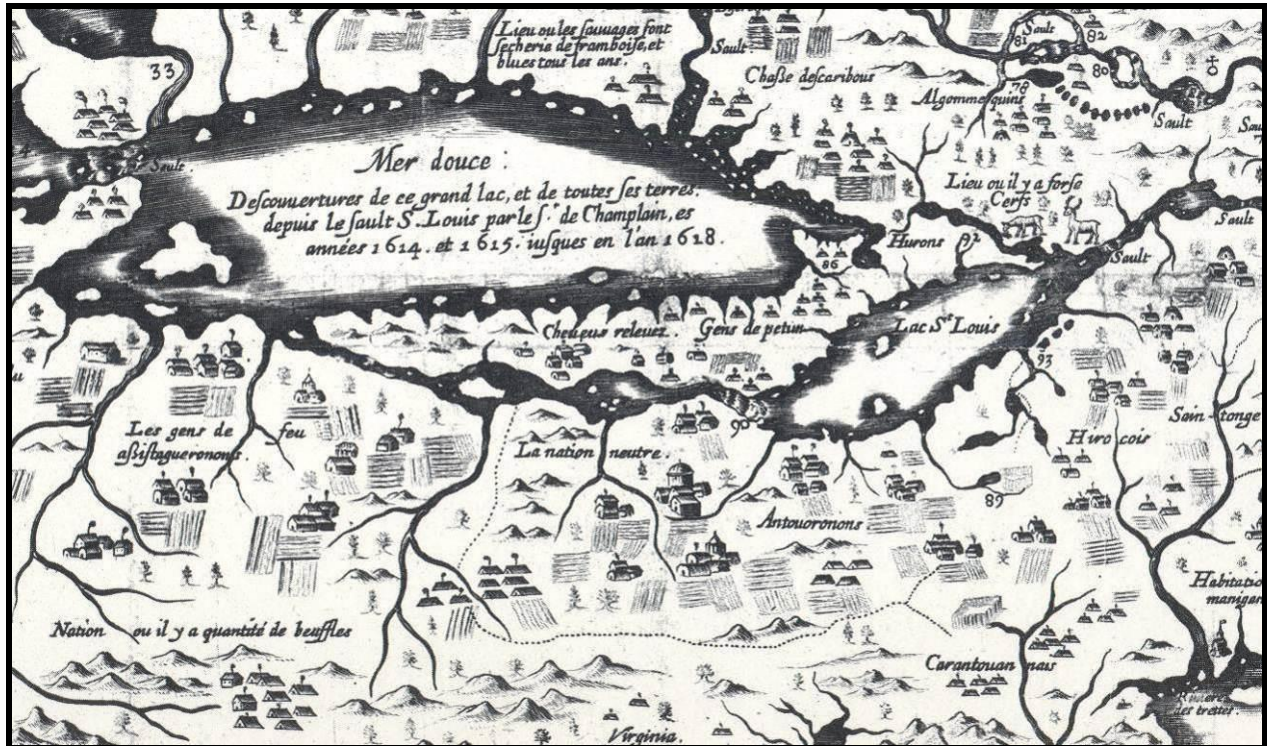 Lieu ou les sauuages font
secherie de framboise, et
blues tous les ans.
Sault.
Sault
81
82
33
Chasse des caribous
80
78
Algommequins
Sault
Sault.
Mer douce :
Descouuertures de ce grand lac, et de toutes ses terres.
depuis le sault St. Louis par le sr. de Champlain, es
années 1614. et 1615. iusques en l'an 1618.
Lieu ou il y a forse
Cerfs
Sault
Hurons
92
Sault
86
Cheueux releuez.
Gens de petun
Lac St. Louis
93
90
Les gens de feu
assistagueronons
La nation neutre.
Hirocois
Sain-tonge
89
Antouoronons
Habitatio
maniga
Nation ou il y a quantité de beuffles
Carantouannais
Riuiere
des trettes.
Virginia.